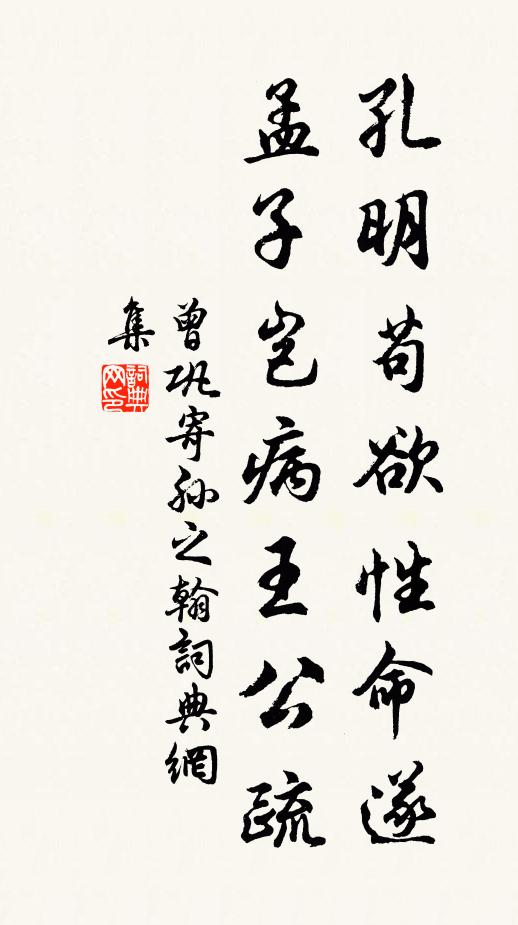 孔明苟欲性命遂
孟子岂病王公疏
曾巩寄孙之翰詞典網
集
詞典
网印